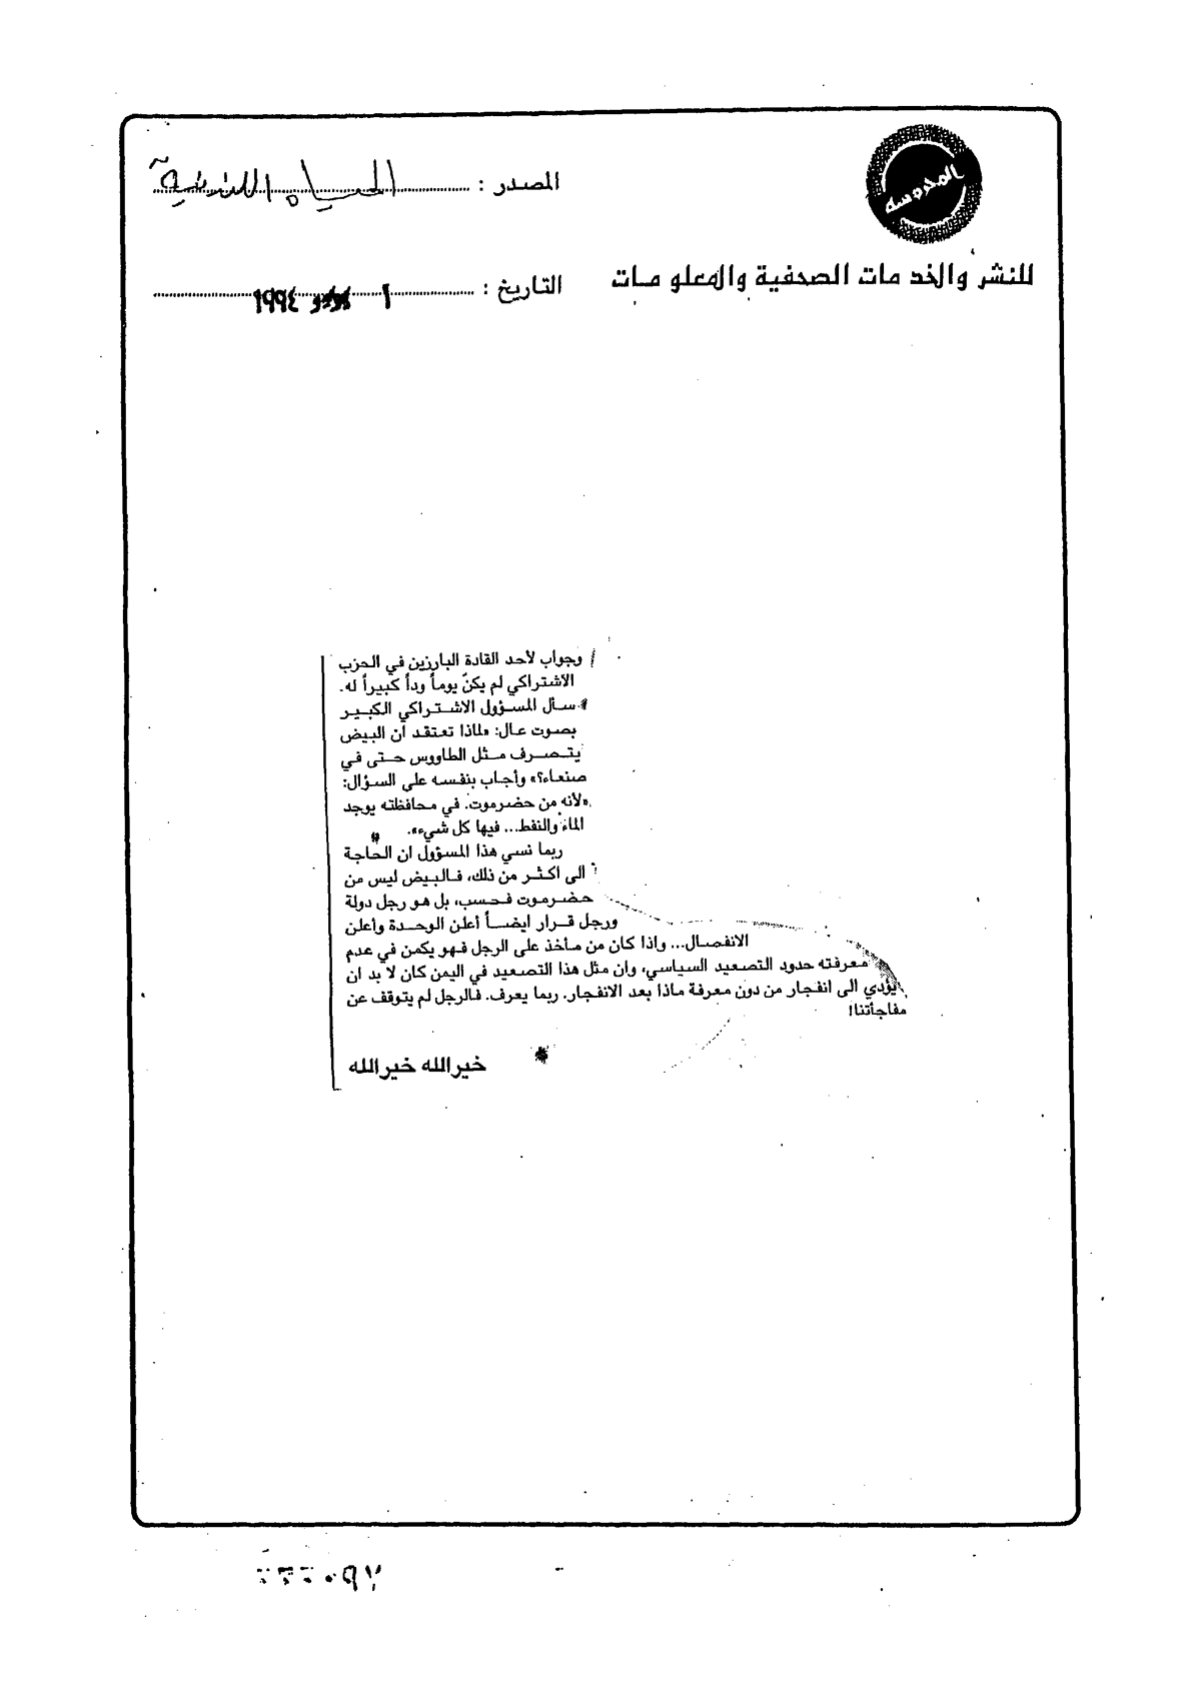 المحروسة
المصدر : الحياة اللندنية
للنشر والخدمات الصحفية والمعلومات
التاريخ : ١ ١٩٩٤
وجواب لأحد القادة البارزين في الحزب
الاشتراكي لم يكنّ يوماً وداً كبيراً له.
سأل المسؤول الاشتراكي الكبير
بصوت عال: «لماذا تعتقد ان البيض
يتصرف مثل الطاووس حتى في
صنعاء؟» وأجاب بنفسه على السؤال:
«لأنه من حضرموت. في محافظته يوجد
الماء والنفط... فيها كل شيء».
ربما نسي هذا المسؤول ان الحاجة
الى اكثر من ذلك، فالبيض ليس من
حضرموت فحسب، بل هو رجل دولة
ورجل قرار ايضاً أعلن الوحدة وأعلن
الانفصال... واذا كان من مأخذ على الرجل فهو يكمن في عدم
معرفته حدود التصعيد السياسي، وان مثل هذا التصعيد في اليمن كان لا بد ان
يؤدي الى انفجار من دون معرفة ماذا بعد الانفجار. ربما يعرف. فالرجل لم يتوقف عن
مفاجأتنا!
خيرالله خيرالله